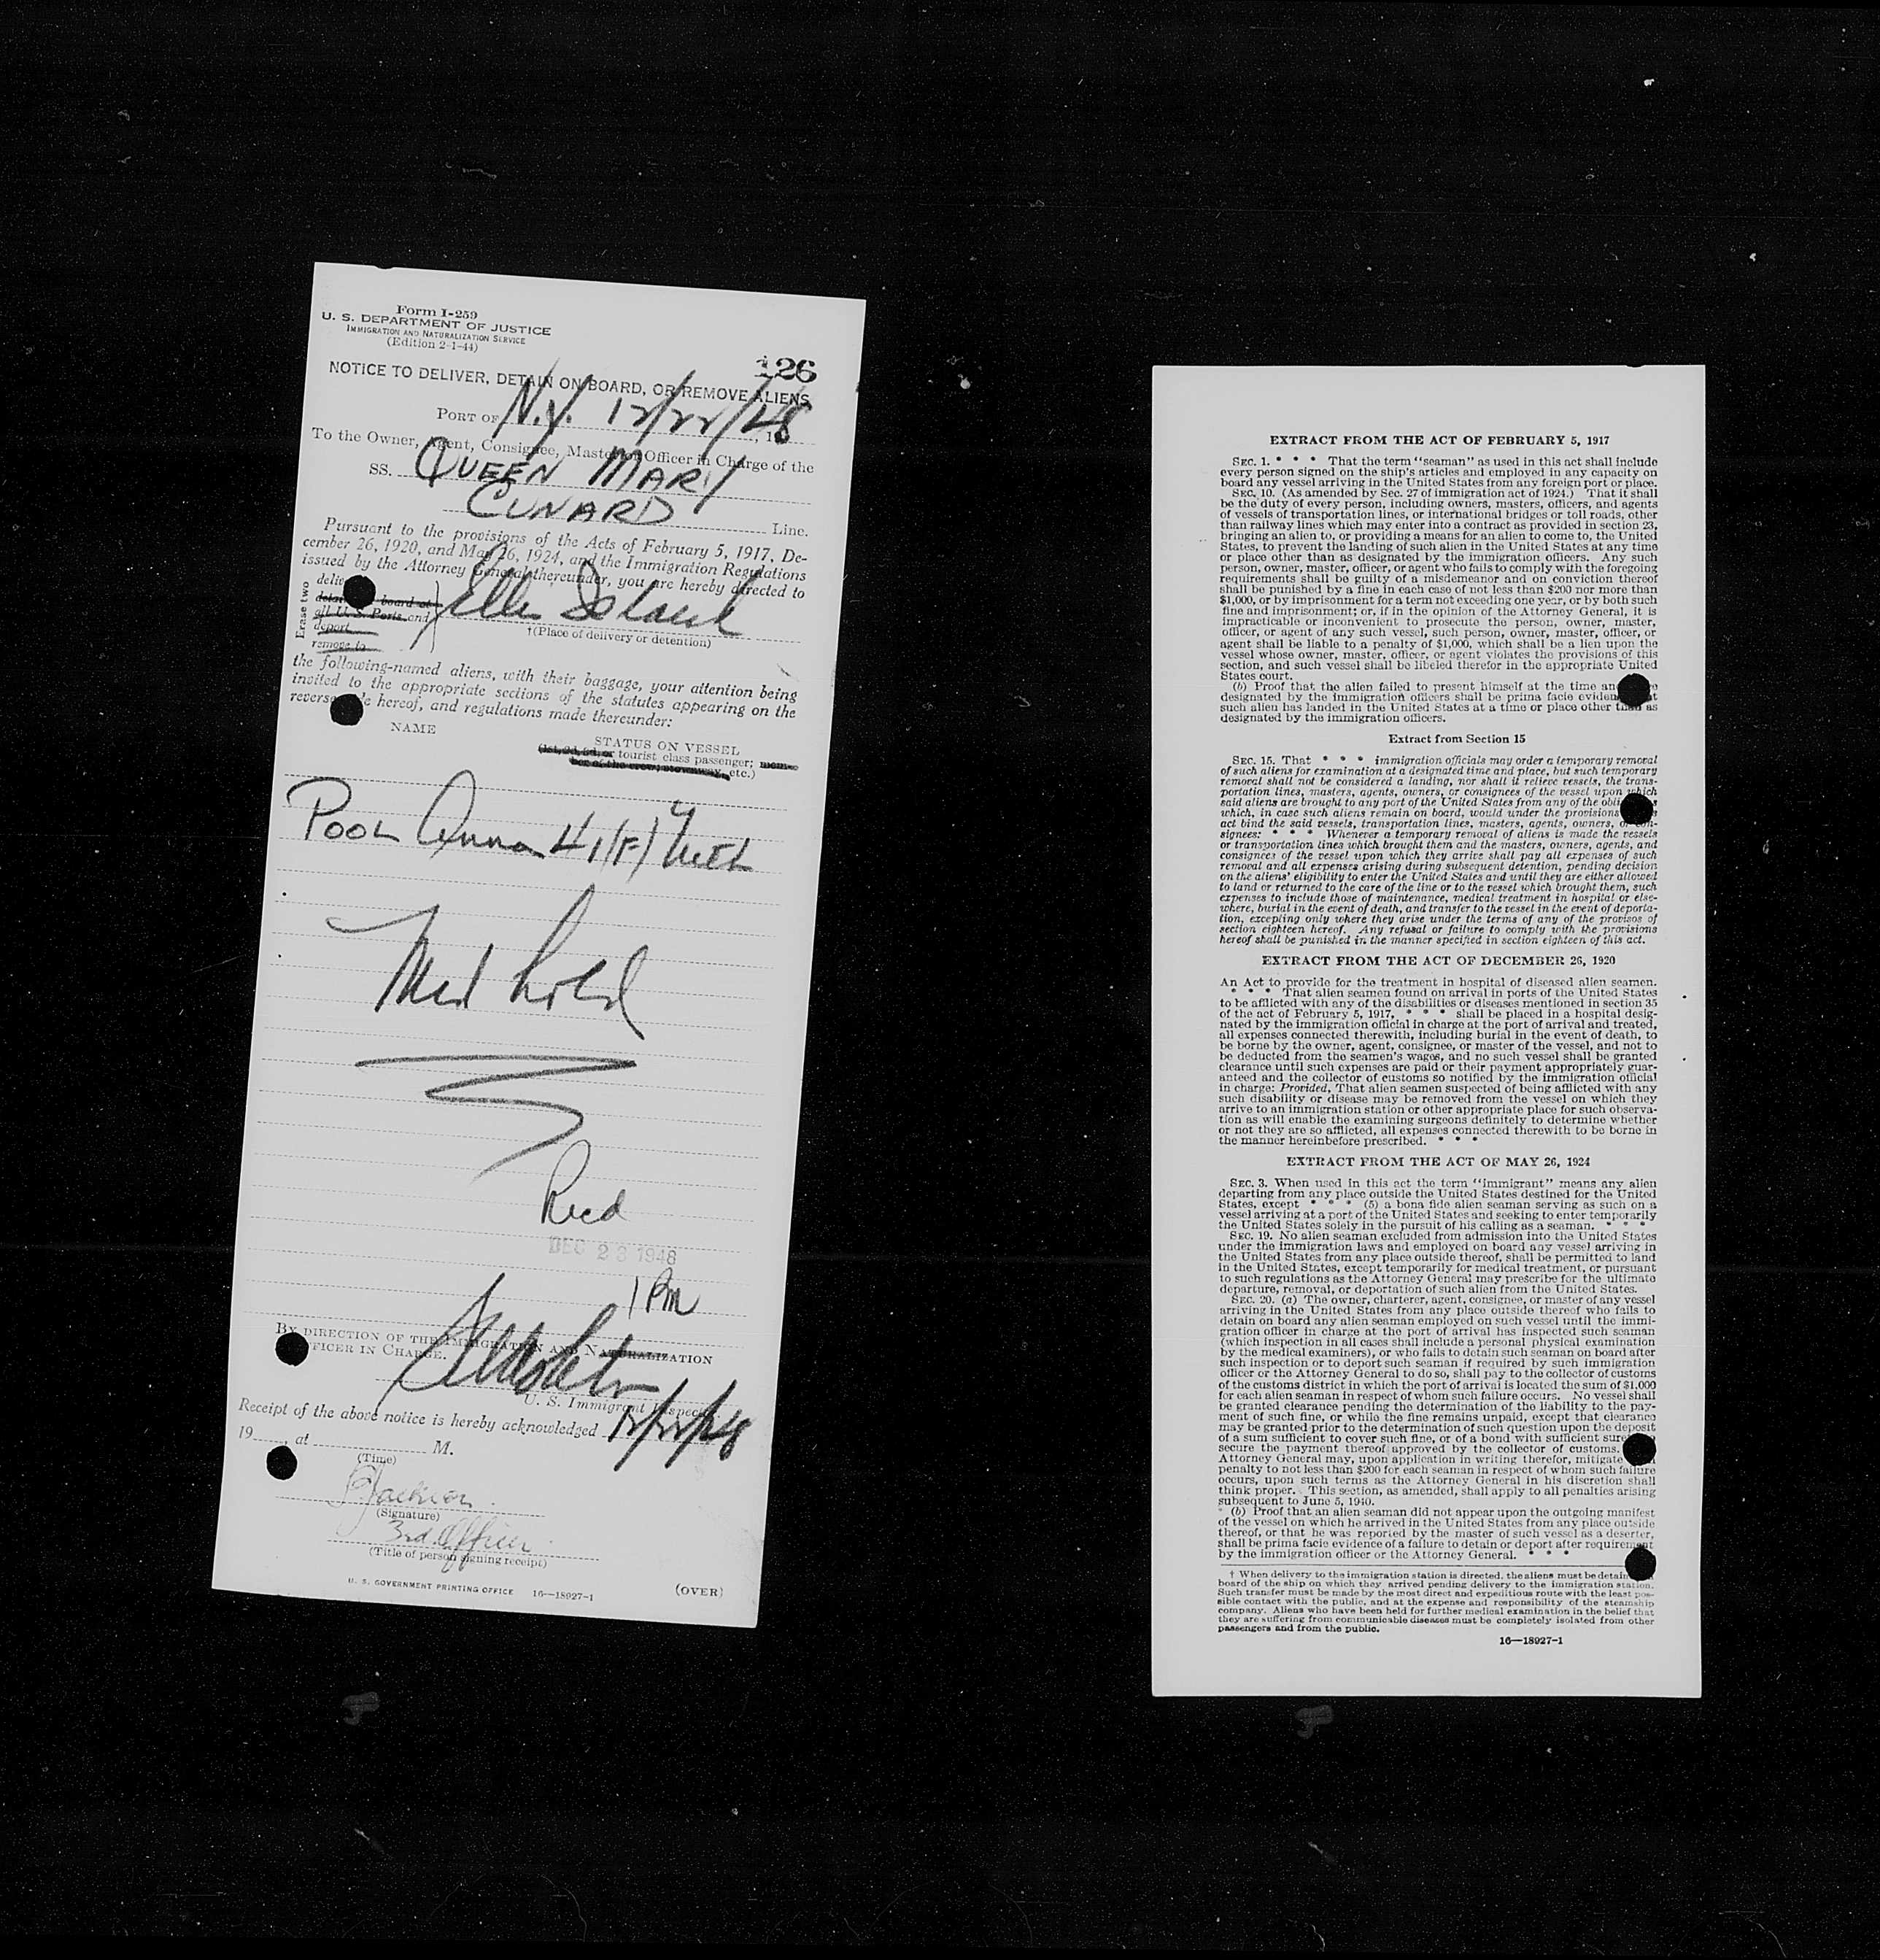 Form I-259
U. S. DEPARTMENT OF JUSTICE
IMMIGRATION AND NATURALIZATION SERVICE
(Edition 2-1-44)
126
NOTICE TO DELIVER, DETAIN ON BOARD, OR REMOVE ALIENS
PORT OF N.Y. 12/22/48, 19
To the Owner, Agent, Consignee, Master or Officer in Charge of the
SS. QUEEN MARY
CUNARD Line.
Pursuant to the provisions of the Acts of February 5, 1917, De-
cember 26, 1920, and May 26, 1924, and the Immigration Regulations
issued by the Attorney General thereunder, you are hereby directed to
Erase two
board at
all U. S. Ports and
deport
remove to
Ellis Island
†(Place of delivery or detention)
the following-named aliens, with their baggage, your attention being
invited to the appropriate sections of the statutes appearing on the
reverse hereof, and regulations made thereunder:
NAME
STATUS ON VESSEL
(1st, 2d, 3d, or tourist class passenger; mem-
ber of the crew; stowaway, etc.)
POOL Anna 41 (F) NETH
Med hold
Recd
DEC 23 1948
1 PM
BY DIRECTION OF THE IMMIGRATION AND NATURALIZATION
OFFICER IN CHARGE.
U. S. Immigrant Inspector
Receipt of the above notice is hereby acknowledged 12/22/48
19, at M.
(Time)
Jackson
(Signature)
3rd. Officer
(Title of person signing receipt)
U. S. GOVERNMENT PRINTING OFFICE 16—18927-1 (OVER)
EXTRACT FROM THE ACT OF FEBRUARY 5, 1917
SEC. 1. * * * That the term "seaman" as used in this act shall include
every person signed on the ship's articles and employed in any capacity on
board any vessel arriving in the United States from any foreign port or place.
SEC. 10. (As amended by Sec. 27 of immigration act of 1924.) That it shall
be the duty of every person, including owners, masters, officers, and agents
of vessels of transportation lines, or international bridges or toll roads, other
than railway lines which may enter into a contract as provided in section 23,
bringing an alien to, or providing a means for an alien to come to, the United
States, to prevent the landing of such alien in the United States at any time
or place other than as designated by the immigration officers. Any such
person, owner, master, officer, or agent who fails to comply with the foregoing
requirements shall be guilty of a misdemeanor and on conviction thereof
shall be punished by a fine in each case of not less than $200 nor more than
$1,000, or by imprisonment for a term not exceeding one year, or by both such
fine and imprisonment; or, if in the opinion of the Attorney General, it is
impracticable or inconvenient to prosecute the person, owner, master,
officer, or agent of any such vessel, such person, owner, master, officer, or
agent shall be liable to a penalty of $1,000, which shall be a lien upon the
vessel whose owner, master, officer, or agent violates the provisions of this
section, and such vessel shall be libeled therefor in the appropriate United
States court.
(b) Proof that the alien failed to present himself at the time and
designated by the immigration officers shall be prima facie eviden
such alien has landed in the United States at a time or place other than as
designated by the immigration officers.
Extract from Section 15
SEC. 15. That * * * immigration officials may order a temporary removal
of such aliens for examination at a designated time and place, but such temporary
removal shall not be considered a landing, nor shall it relieve vessels, the trans-
portation lines, masters, agents, owners, or consignees of the vessel upon which
said aliens are brought to any port of the United States from any of the obli
which, in case such aliens remain on board, would under the provisions
act bind the said vessels, transportation lines, masters, agents, owners, or con-
signees: * * * Whenever a temporary removal of aliens is made the vessels
or transportation lines which brought them and the masters, owners, agents, and
consignees of the vessel upon which they arrive shall pay all expenses of such
removal and all expenses arising during subsequent detention, pending decision
on the aliens' eligibility to enter the United States and until they are either allowed
to land or returned to the care of the line or to the vessel which brought them, such
expenses to include those of maintenance, medical treatment in hospital or else-
where, burial in the event of death, and transfer to the vessel in the event of deporta-
tion, excepting only where they arise under the terms of any of the provisos of
section eighteen hereof. Any refusal or failure to comply with the provisions
hereof shall be punished in the manner specified in section eighteen of this act.
EXTRACT FROM THE ACT OF DECEMBER 26, 1920
An Act to provide for the treatment in hospital of diseased alien seamen.
* * * That alien seamen found on arrival in ports of the United States
to be afflicted with any of the disabilities or diseases mentioned in section 35
of the act of February 5, 1917, * * * shall be placed in a hospital desig-
nated by the immigration official in charge at the port of arrival and treated,
all expenses connected therewith, including burial in the event of death, to
be borne by the owner, agent, consignee, or master of the vessel, and not to
be deducted from the seamen's wages, and no such vessel shall be granted
clearance until such expenses are paid or their payment appropriately guar-
anteed and the collector of customs so notified by the immigration official
in charge: Provided, That alien seamen suspected of being afflicted with any
such disability or disease may be removed from the vessel on which they
arrive to an immigration station or other appropriate place for such observa-
tion as will enable the examining surgeons definitely to determine whether
or not they are so afflicted, all expenses connected therewith to be borne in
the manner hereinbefore prescribed. * * *
EXTRACT FROM THE ACT OF MAY 26, 1924
SEC. 3. When used in this act the term "immigrant" means any alien
departing from any place outside the United States destined for the United
States, except * * * (5) a bona fide alien seaman serving as such on a
vessel arriving at a port of the United States and seeking to enter temporarily
the United States solely in the pursuit of his calling as a seaman. * * *
SEC. 19. No alien seaman excluded from admission into the United States
under the immigration laws and employed on board any vessel arriving in
the United States from any place outside thereof, shall be permitted to land
in the United States, except temporarily for medical treatment, or pursuant
to such regulations as the Attorney General may prescribe for the ultimate
departure, removal, or deportation of such alien from the United States.
SEC. 20. (a) The owner, charterer, agent, consignee, or master of any vessel
arriving in the United States from any place outside thereof who fails to
detain on board any alien seaman employed on such vessel until the immi-
gration officer in charge at the port of arrival has inspected such seaman
(which inspection in all cases shall include a personal physical examination
by the medical examiners), or who fails to detain such seaman on board after
such inspection or to deport such seaman if required by such immigration
officer or the Attorney General to do so, shall pay to the collector of customs
of the customs district in which the port of arrival is located the sum of $1,000
for each alien seaman in respect of whom such failure occurs. No vessel shall
be granted clearance pending the determination of the liability to the pay-
ment of such fine, or while the fine remains unpaid, except that clearance
may be granted prior to the determination of such question upon the deposit
of a sum sufficient to cover such fine, or of a bond with sufficient sure
secure the payment thereof approved by the collector of customs.
Attorney General may, upon application in writing therefor, mitigate
penalty to not less than $200 for each seaman in respect of whom such failure
occurs, upon such terms as the Attorney General in his discretion shall
think proper. This section, as amended, shall apply to all penalties arising
subsequent to June 5, 1940.
(b) Proof that an alien seaman did not appear upon the outgoing manifest
of the vessel on which he arrived in the United States from any place outside
thereof, or that he was reported by the master of such vessel as a deserter,
shall be prima facie evidence of a failure to detain or deport after requirement
by the immigration officer or the Attorney General. * * *
† When delivery to the immigration station is directed, the aliens must be detain
board of the ship on which they arrived pending delivery to the immigration station.
Such transfer must be made by the most direct and expeditious route with the least pos-
sible contact with the public, and at the expense and responsibility of the steamship
company. Aliens who have been held for further medical examination in the belief that
they are suffering from communicable diseases must be completely isolated from other
passengers and from the public.
16—18927-1